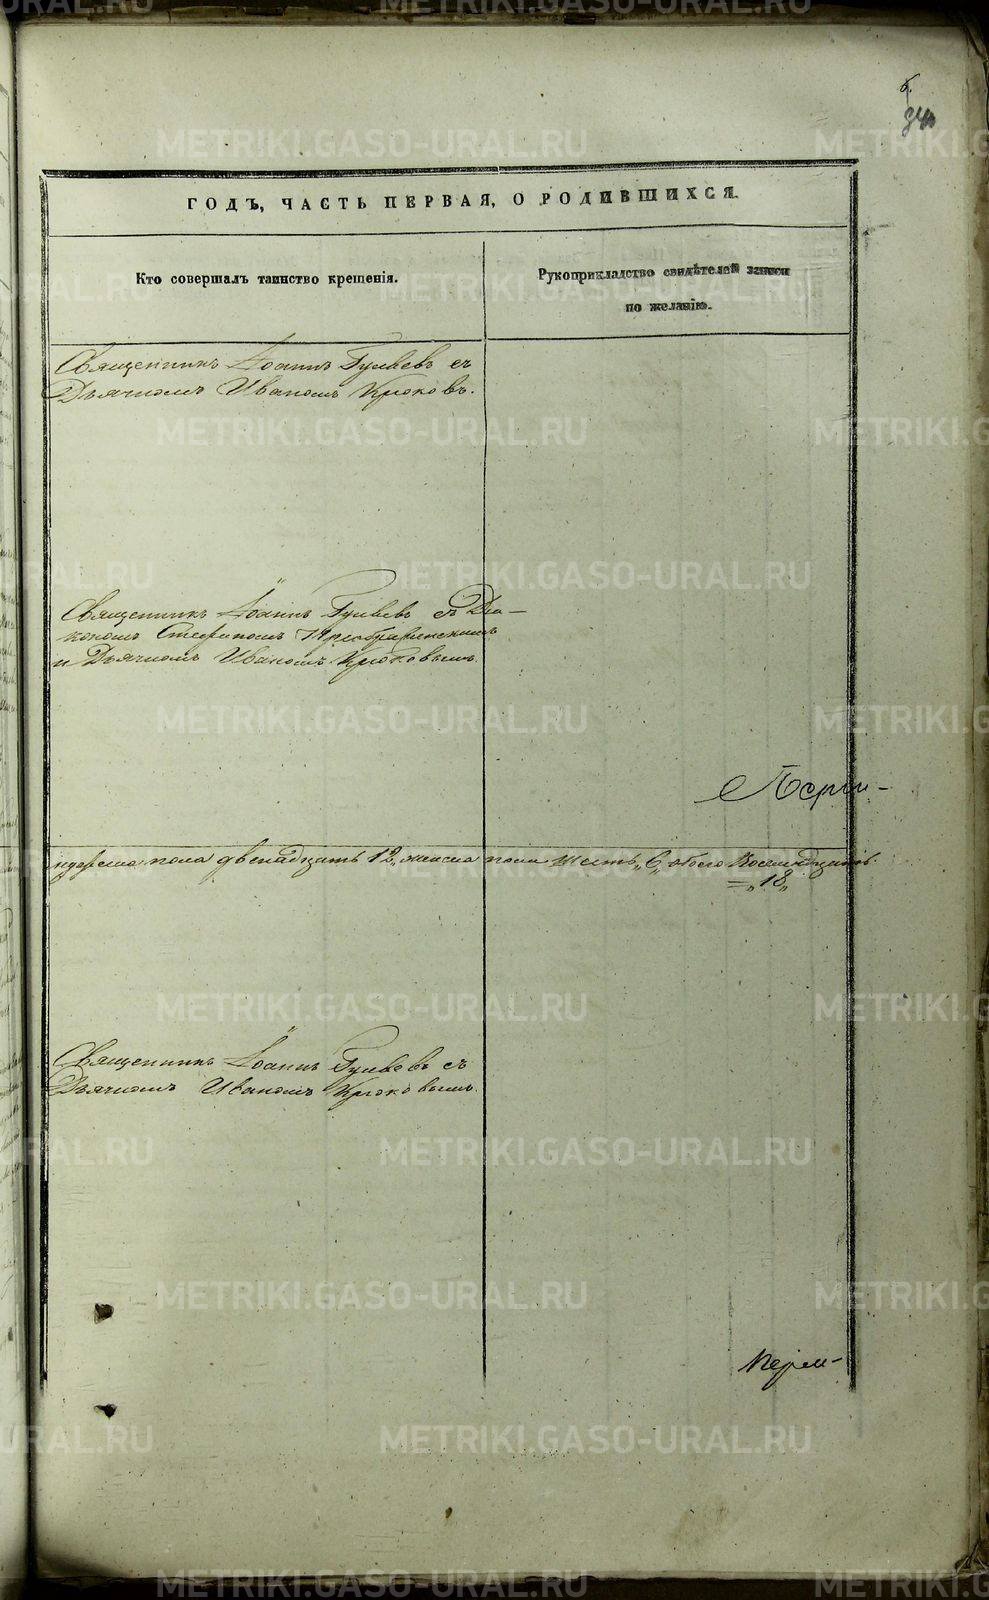 6.
340
ГОДЪ, ЧАСТЬ ПЕРВАЯ, О РОДИВШИХСЯ.
Кто совершалъ таинство крещенія.
Рукоприкладство свидѣтелей записи
по желанію.
Священникъ Іоаннъ Гуляевъ съ
Дьячкомъ Иваномъ Крюковъ.
Священникъ Іоаннъ Гуляевъ съ Діа–
кономъ Стефаномъ Преображенскимъ
и Дьячкомъ Иваномъ Крюковымъ.
пола двенадцать 12, женска пола шесть „6„ обоего Восемнадцать.
= „18„
Священникъ Іоаннъ Гуляевъ съ
Дьячкомъ Иваномъ Крюковымъ.
METRIKI.GASO-URAL.RU